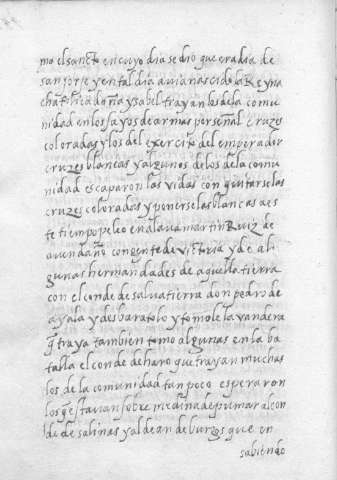 mo el sancto en cuyo dia se dio que era dia de
san jorje y en tal dia avia nascido la Reyna
chatolica doña ysabel trayan los de la comu
nidad en los sayos de armas por señal cruzes
coloradas y los del exercito del emperador
cruzes blancas y algunos de los de la comu
nidad escaparon las vidas con quitarse las
cruzes coloradas y ponerse las blancas a es
te tiempo peleo en alava martin Ruiz de
avendaño con gente de victoria y de al
gunas hermandades de aquella tierra
con el conde de salvatierra don pedro de
ayala y desbaratolo y tomole la vandera
q̃ traya tambien tomo algunas en la ba
talla el conde de haro que trayan muchas
los de la comunidad tan poco esperaron
los q̃ estavan sobre medina de pumar al con
de de salinas y al dean de burgos que en
sabiendo